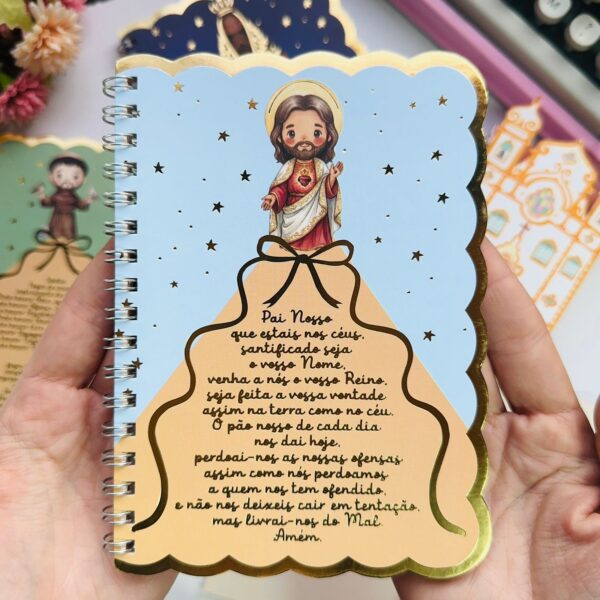 Pai Nosso
que estais nos céus,
santificado seja
o vosso Nome,
venha a nós o vosso Reino,
seja feita a vossa vontade
assim na terra como no céu.
O pão nosso de cada dia
nos dai hoje,
perdoai-nos as nossas ofensas
assim como nós perdoamos
a quem nos tem ofendido,
e não nos deixeis cair em tentação,
mas livrai-nos do Mal.
Amém.